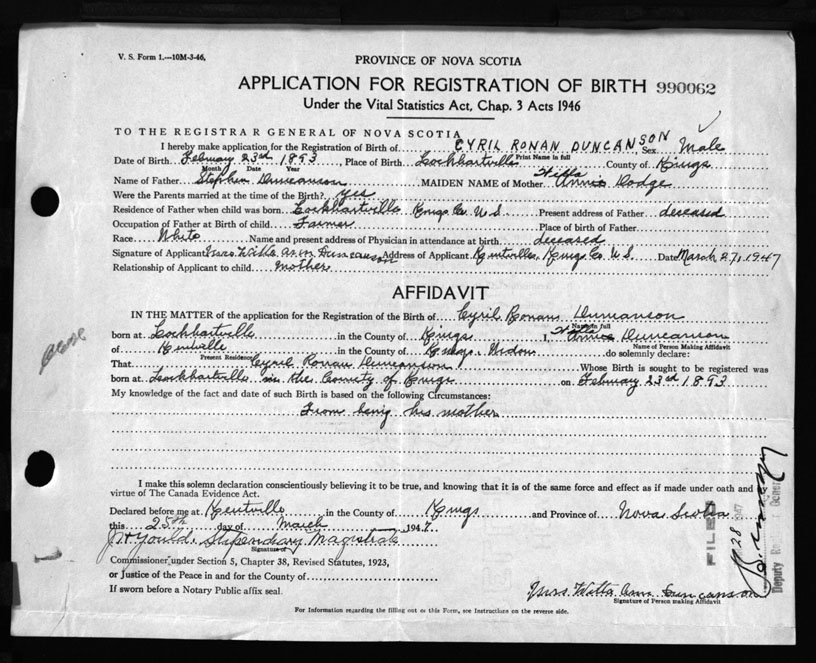 V. S. Form 1.—10M-3-46,
PROVINCE OF NOVA SCOTIA
APPLICATION FOR REGISTRATION OF BIRTH 990062
Under the Vital Statistics Act, Chap. 3 Acts 1946
TO THE REGISTRAR GENERAL OF NOVA SCOTIA
I hereby make application for the Registration of Birth of CYRIL RONAN DUNCANSON Sex Male
Print Name in full
Date of Birth February 23rd 1893 Place of Birth Lockhartville County of Kings
Month Date Year
Name of Father Stephen Duncanson MAIDEN NAME of Mother Willa Annie Dodge
Were the Parents married at the time of the Birth? Yes
Residence of Father when child was born Lockhartville Kings Co. N.S. Present address of Father deceased
Occupation of Father at Birth of child Farmer Place of birth of Father
Race White Name and present address of Physician in attendance at birth deceased
Signature of Applicant Mrs. Willa Ann Duncanson Address of Applicant Kentville, Kings Co. N.S. Date March 27, 1947
Relationship of Applicant to child mother
AFFIDAVIT
IN THE MATTER of the application for the Registration of the Birth of Cyril Ronan Duncanson
Name in full
born at Lockhartville in the County of Kings I, Willa Annie Duncanson
Name of Person Making Affidavit
of Kentville in the County of Kings, Widow do solemnly declare:
Present Residence
That Cyril Ronan Duncanson Whose Birth is sought to be registered was
born at Lockhartville in the County of Kings on February 23rd 1893
My knowledge of the fact and date of such Birth is based on the following Circumstances:
From being his mother
I make this solemn declaration conscientiously believing it to be true, and knowing that it is of the same force and effect as if made under oath and by
virtue of The Canada Evidence Act.
Declared before me at Kentville in the County of Kings and Province of Nova Scotia
this 28th day of March 1947
Stipendiary Magistrate
Signature of
Commissioner under Section 5, Chapter 38, Revised Statutes, 1923,
or Justice of the Peace in and for the County of
If sworn before a Notary Public affix seal.
Mrs. Willa Ann Duncanson
Signature of Person making Affidavit
For Information regarding the filling out of this Form, see Instructions on the reverse side.
FILED
28 1947
Deputy Registrar General